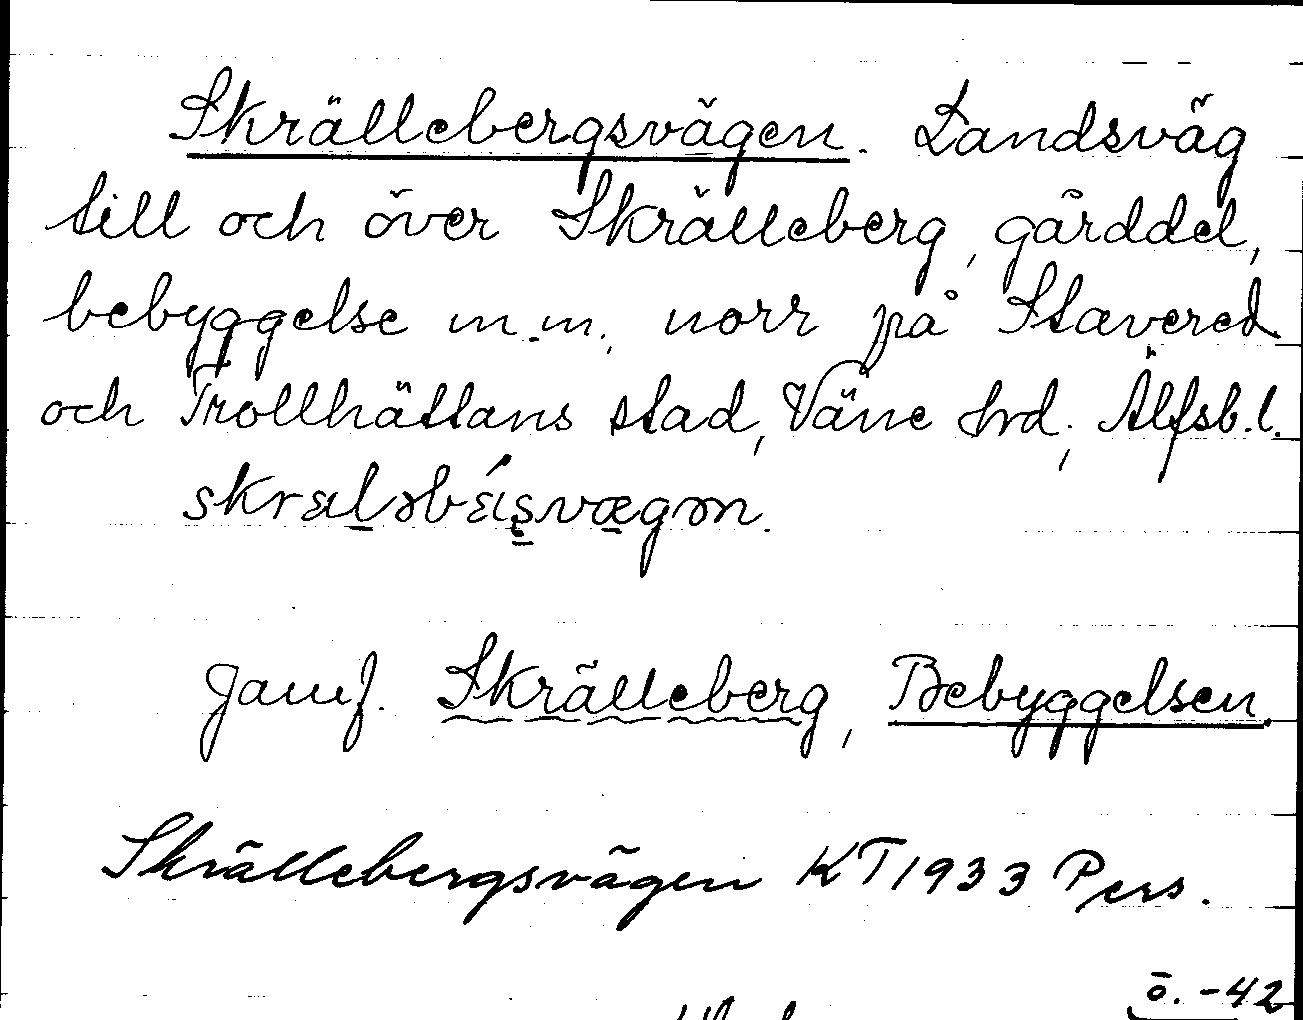 Skrällebergsvägen. Landsväg
till och över Skrälleberg, gårddel,
bebyggelse m.m., norr på Stavered
och Trollhättans stad, Väne hrd, Älfsb. l.
skrɛləbǽi̯svægən.
Jämf. Skrälleberg, Bebyggelsen.
Skrällebergsvägen KT 1933 Pers.
ö. -42